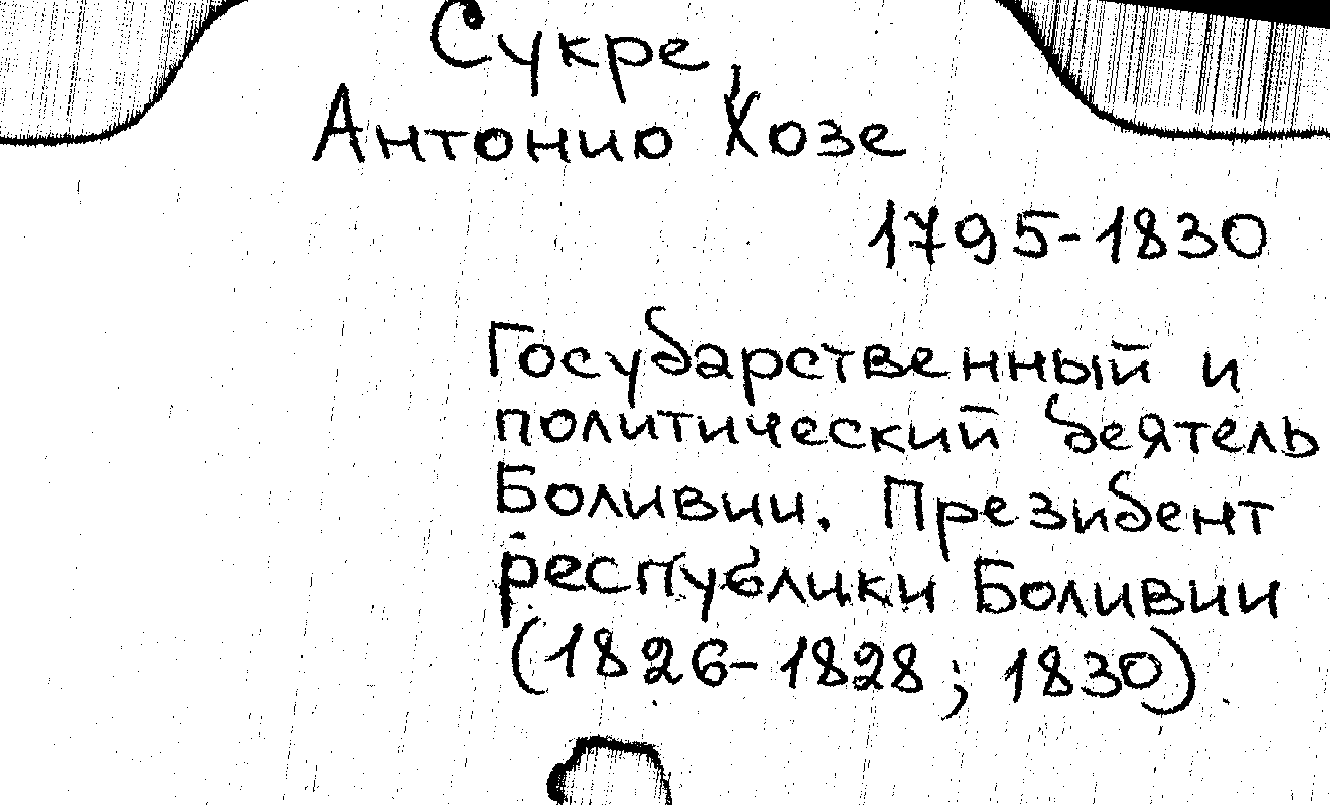 Сукре,
Антонио Хозе
1795-1830
Государственный и
политический деятель
Боливии. Президент
республики Боливии
(1826-1828; 1830)